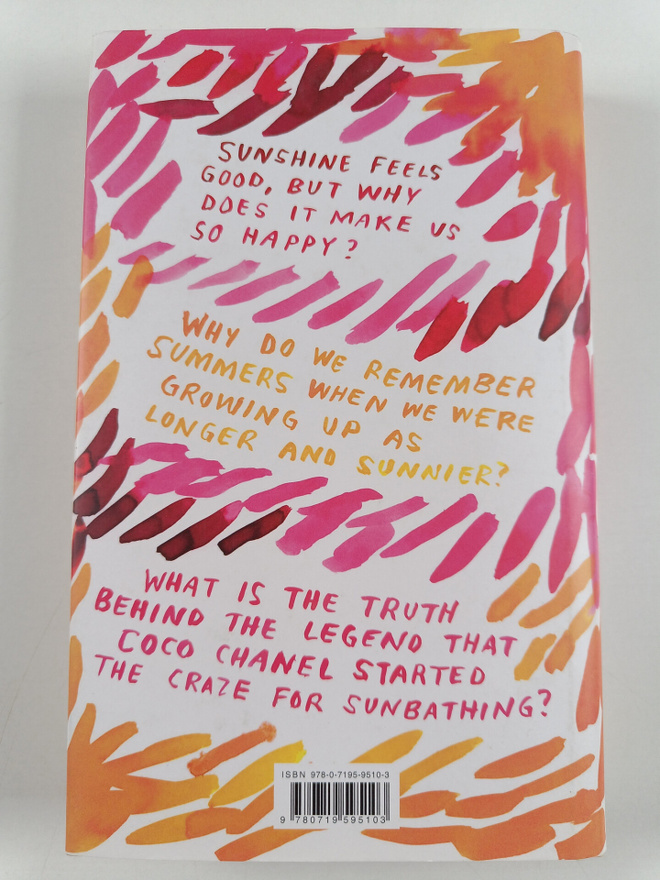 SUNSHINE FEELS
GOOD, BUT WHY
DOES IT MAKE US
SO HAPPY?
WHY DO WE REMEMBER
SUMMERS WHEN WE WERE
GROWING UP AS
LONGER AND SUNNIER?
WHAT IS THE TRUTH
BEHIND THE LEGEND THAT
COCO CHANEL STARTED
THE CRAZE FOR SUNBATHING?
ISBN 978-0-7195-9510-3
9 780719 595103